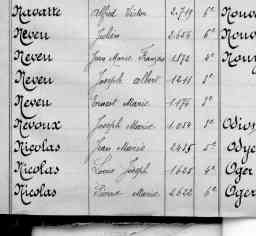 Navarre Alfred Victor 2.719 6e Nouv
Neveu Julien 2.656 6e Nouv
Neveu Jean Marie François 1.572 4e Nouv
Neveu Joseph Albert 1.211 3e
Neveu Ernest Marie 1.176 3e
Nevoux Joseph Marie 1.054 3e Odion
Nicolas Jean Marie 2.425 5e Odye
Nicolas Louis Joseph 1.625 4e Oger
Nicolas Pierre Marie 2.622 6e Oger